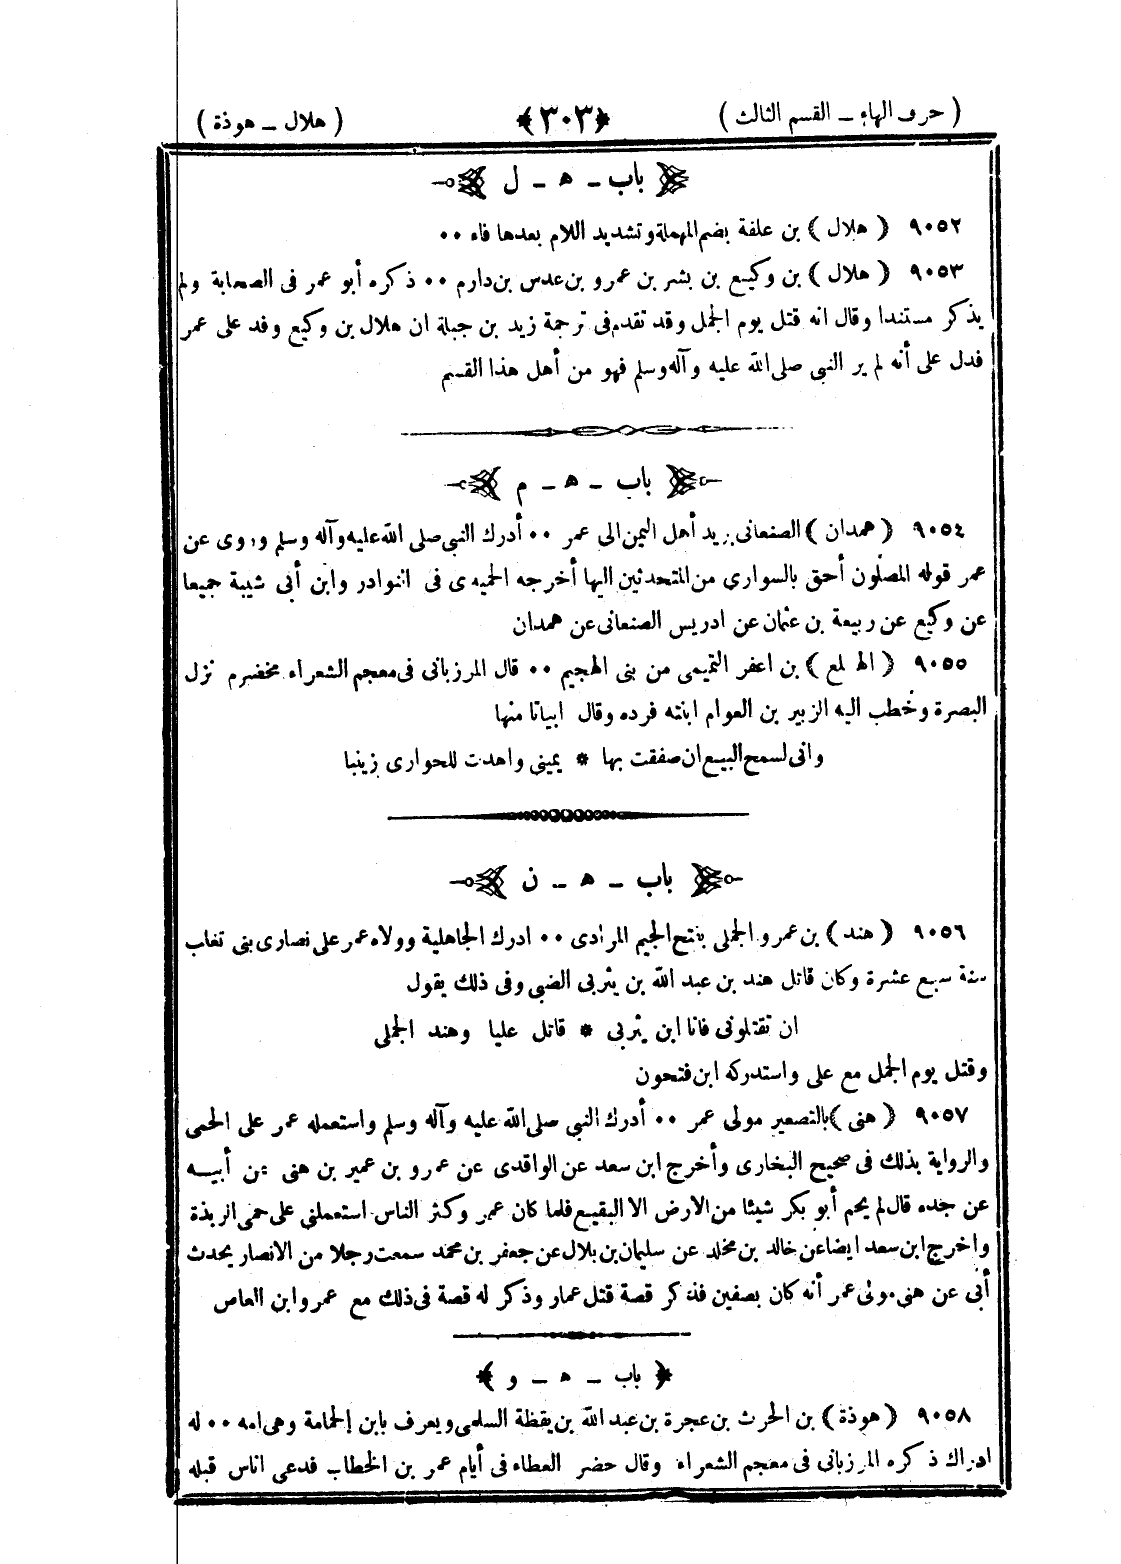 ( حرف الهاء - القسم الثالث ) ﴿٣٠٣﴾ ( هلال - هوذة )
باب - ه - ل
٩٠٥٢ ( هلال ) بن علفة بضم المهملة وتشديد اللام بعدها فاء ٠٠
٩٠٥٣ ( هلال ) بن وكيع بن بشر بن عمرو بن عدس بن دارم ٠٠ ذكره أبو عمر فى الصحابة ولم
يذكر مستندا وقال انه قتل يوم الجمل وقد تقدم فى ترجمة زيد بن جبلة ان هلال بن وكيع وفد على عمر
فدل على أنه لم ير النبى صلى الله عليه وآله وسلم فهو من أهل هذا القسم
باب - ه - م
٩٠٥٤ ( همدان ) الصنعانى بريد أهل اليمن الى عمر ٠٠ أدرك النبى صلى الله عليه وآله وسلم وروى عن
عمر قوله المصلون أحق بالسواري من المتحدثين اليها أخرجه الحميدى فى النوادر وابن أبى شيبة جميعا
عن وكيع عن ربيعة بن عثمان عن ادريس الصنعانى عن همدان
٩٠٥٥ ( الهملع ) بن اعفر التميمى من بنى الهجيم ٠٠ قال المرزبانى فى معجم الشعراء مخضرم نزل
البصرة وخطب اليه الزبير بن العوام ابنته فرده وقال ابياتا منها
وانى لسمح البيع ان صفقت بها * يمينى واهدت للحوارى زينبا
باب - ه - ن
٩٠٥٦ ( هند ) بن عمرو الجملى بفتح الجيم المرادى ٠٠ ادرك الجاهلية وولاه عمر على نصارى بنى تغلب
سنة سبع عشرة وكان قاتل هند بن عبد الله بن يثربى الضبى وفى ذلك يقول
ان تقتلونى فانا ابن يثربى * قاتل عليا وهند الجملى
وقتل يوم الجمل مع على واستدركه ابن فتحون
٩٠٥٧ ( هنى ) بالتصغير مولى عمر ٠٠ أدرك النبى صلى الله عليه وآله وسلم واستعمله عمر على الحمى
والرواية بذلك فى صحيح البخارى وأخرج ابن سعد عن الواقدى عن عمرو بن عمير بن هنى عن أبيه
عن جده قال لم يحم أبو بكر شيئا من الارض الا البقيع فلما كان عمر وكثر الناس استعملنى على حمى الربذة
واخرج ابن سعد ايضا عن خالد بن مخلد عن سليمان بن بلال عن جعفر بن محمد سمعت رجلا من الانصار يحدث
أبى عن هنى مولى عمر أنه كان بصفين فذكر قصة قتل عمار وذكر له قصة فى ذلك مع عمرو ابن العاص
﴿ باب - ه - و ﴾
٩٠٥٨ ( هوذة ) بن الحرث بن عجرة بن عبد الله بن يقظة السلمى ويعرف بابن الحمامة وهى امه ٠٠ له
ادراك ذكره المرزبانى فى معجم الشعراء وقال حضر العطاء فى أيام عمر بن الخطاب فدعى اناس قبله